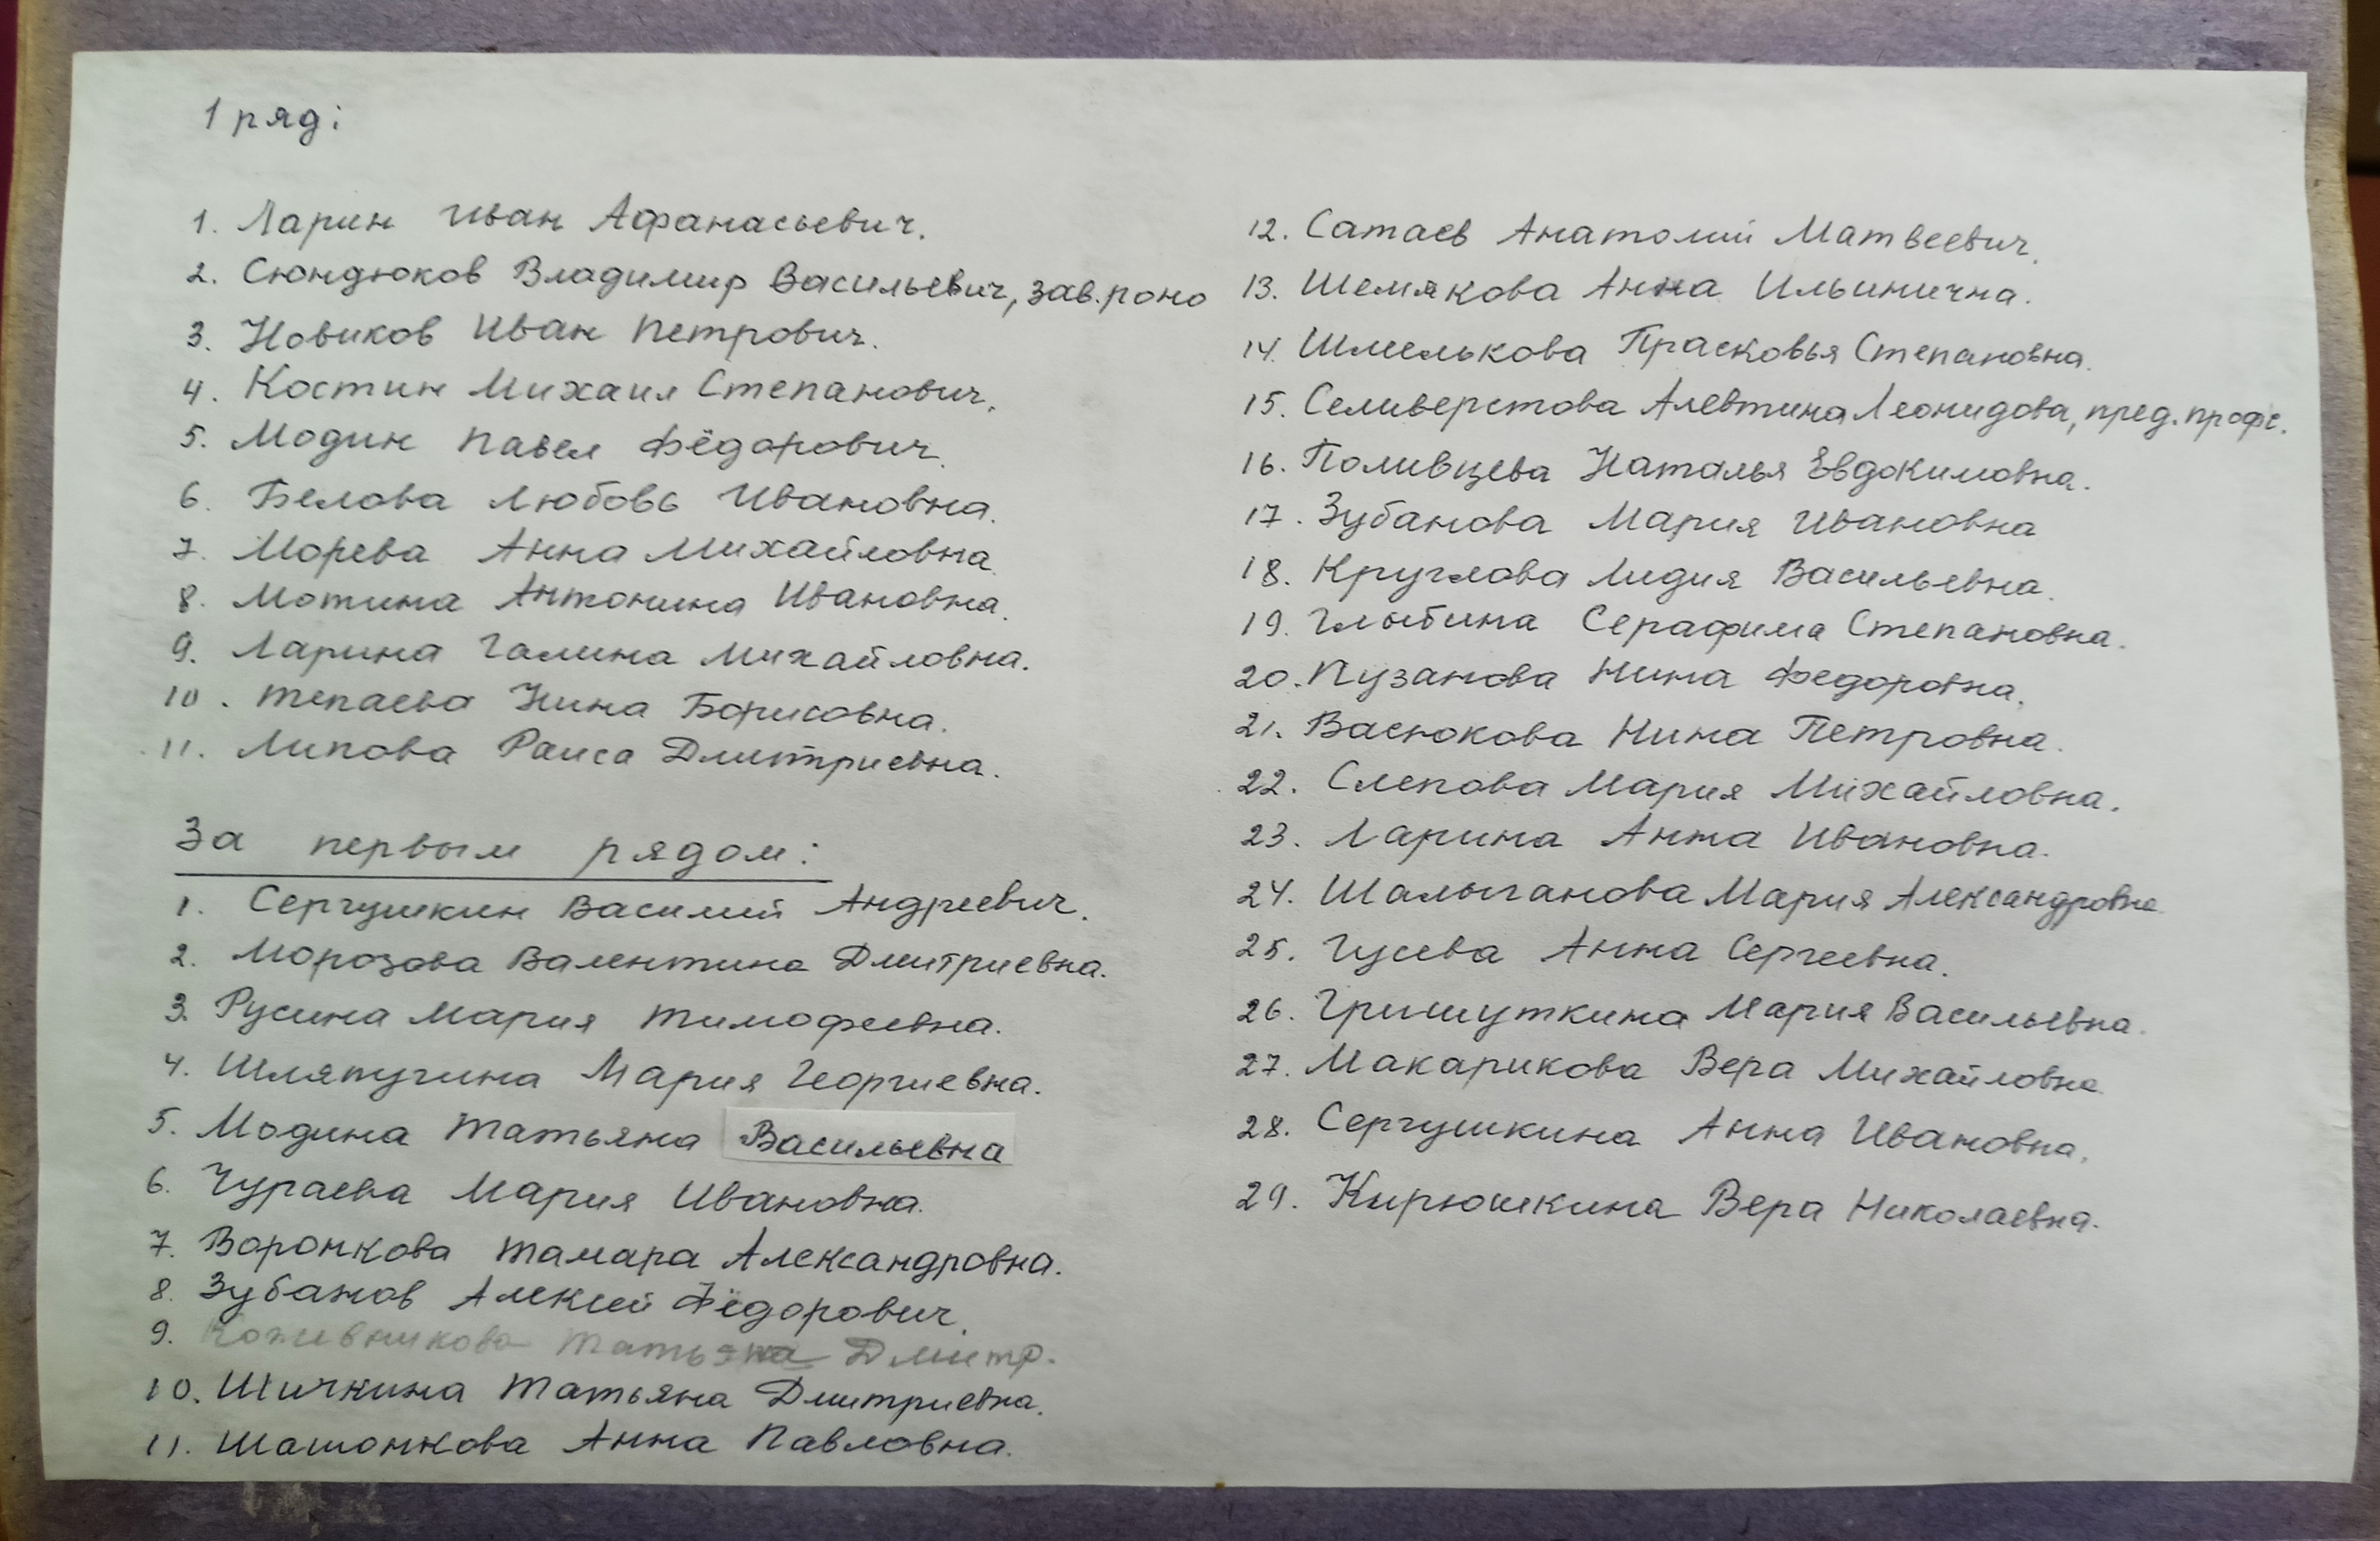 1 ряд:
1. Ларин Иван Афанасьевич.
2. Сюндюков Владимир Васильевич, зав.роно
3. Новиков Иван Петрович.
4. Костин Михаил Степанович.
5. Модин Павел Фёдорович.
6. Белова Любовь Ивановна.
7. Морева Анна Михайловна.
8. Мотина Антонина Ивановна.
9. Ларина Галина Михайловна.
10. Тепаева Нина Борисовна.
11. Липова Раиса Дмитриевна.
За первым рядом:
1. Сергушкин Василий Андреевич.
2. Морозова Валентина Дмитриевна.
3. Русина Мария Тимофеевна.
4. Шляпугина Мария Георгиевна.
5. Модина Татьяна Васильевна
6. Чураева Мария Ивановна.
7. Воронкова Тамара Александровна.
8. Зубанов Алексей Фёдорович.
9. Кожевникова Татьяна Дмитр.
10. Шичкина Татьяна Дмитриевна.
11. Шашонкова Анна Павловна.
12. Сатаев Анатолий Матвеевич.
13. Шемякова Анна Ильинична.
14. Шмелькова Прасковья Степановна.
15. Селиверстова Алевтина Леонидова, пред.профс.
16. Поливцева Наталья Евдокимовна.
17. Зубанова Мария Ивановна
18. Круглова Лидия Васильевна.
19. Глыбина Серафима Степановна.
20. Пузанова Нина Федоровна.
21. Васюкова Нина Петровна.
22. Слепова Мария Михайловна.
23. Ларина Анна Ивановна.
24. Шалыганова Мария Александровна
25. Гусева Анна Сергеевна.
26. Гришуткина Мария Васильевна.
27. Макарикова Вера Михайловна
28. Сергушкина Анна Ивановна.
29. Кирюшкина Вера Николаевна.